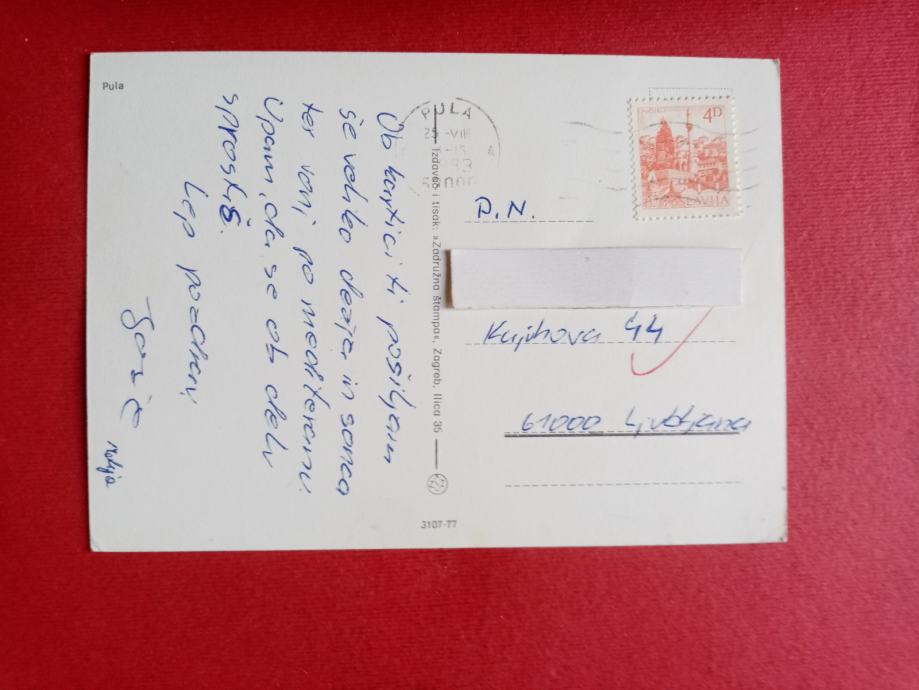 Pula
Ob kartici ti pošiljam
še veliko dežja in sonca
ter vonj po mediteranu.
Upam, da se ob delu
sprostiš.
Lep pozdrav,
Matija
Izdavač i tisak: »Zadružna štampa«, Zagreb, Ilica 35
3107-77
PULA
25 -VIII
4D
JUGOSLAVIJA
D.N.
Kajuhova 44
61000 Ljubljana